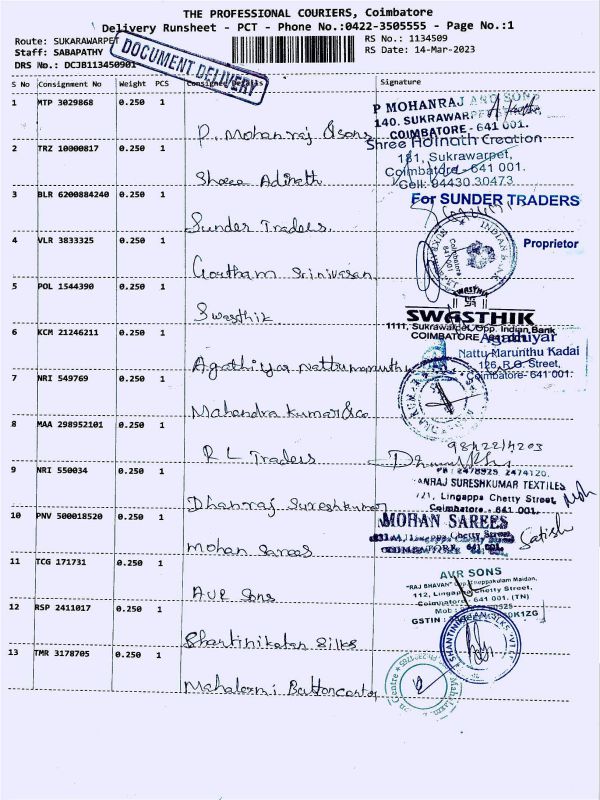 THE PROFESSIONAL COURIERS, Coimbatore
Delivery Runsheet - PCT - Phone No.:0422-3505555 - Page No.:1
Route: SUKARAWARPET
RS No.: 1134509
Staff: SABAPATHY
RS Date: 14-Mar-2023
DRS No.: DCJB113450901
DOCUMENT DELIVERY
S No Consignment No Weight PCS Consignee Details Signature
1 MTP 3029868 0.250 1
P. Mohanraj & sons
P MOHANRAJ AND SONS
140. SUKRAWARPET STREET,
COIMBATORE - 641 001.
2 TRZ 10000817 0.250 1
Shree Adinath
Shree Creation
181, Sukrawarpet,
Coimbatore - 641 001.
Cell: 94430 30473
3 BLR 6200884240 0.250 1
Sunder Traders.
For SUNDER TRADERS
Proprietor
4 VLR 3833325 0.250 1
Goutham Srinivasan
INDIAN BANK
Coimbatore
5 POL 1544390 0.250 1
Swasthik
SWASTHIK
SWASTHIK
1111, Sukrawarpet, Opp. Indian Bank
COIMBATORE
6 KCM 21246211 0.250 1
Agathiyar nattumarunthu
Agathiyar
Nattu Marunthu Kadai
126, R.G. Street,
Coimbatore - 641 001.
7 NRI 549769 0.250 1
Mahendra Kumar & co
8 MAA 298952101 0.250 1
R L Traders
9 NRI 550034 0.250 1
Dhanraj Sureshkumar
PH : 2478925, 2474120.
ANRAJ SURESHKUMAR TEXTILES
721, Lingappa Chetty Street,
Coimbatore - 641 001.
10 PNV 500018520 0.250 1
Mohan Sarees
MOHAN SAREES
Lingappa Chetty Street
COIMBATORE 641 001.
Satish
11 TCG 171731 0.250 1
AVR Sons
AVR SONS
"RAJ BHAVAN" Opp. Maidan,
112, Lingappa Chetty Street,
Coimbatore - 641 001. (TN)
GSTIN :
12 RSP 2411017 0.250 1
Shantiniketan Silks
13 TMR 3178705 0.250 1
Mahalaxmi Button center